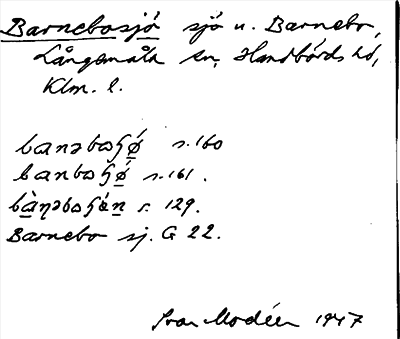 Barnebosjö sjö u. Barnebo,
Långemåla sn, Handbörds hd,
Klm. l.
banəboʃǿ s. 160
banboʃǿ s. 161.
bànəboʃǿn s. 129.
Barnebo sj. G 22.
Ivar Modéer 1947